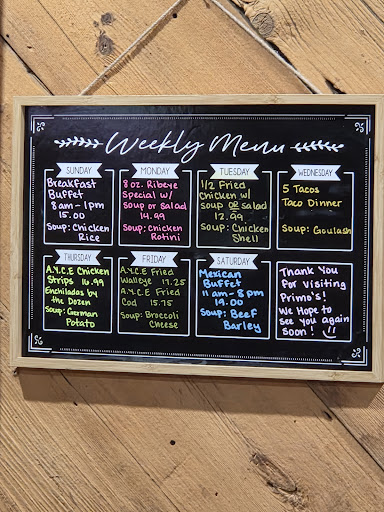 Weekly Menu
SUNDAY
Breakfast
Buffet
8am-1pm
15.00
Soup: Chicken
Rice
MONDAY
8 oz. Ribeye
Special w/
Soup or Salad
14.99
Soup: Chicken
Rotini
TUESDAY
1/2 Fried
Chicken w/
Soup or Salad
12.99
Soup: Chicken
Shell
WEDNESDAY
5 Tacos
Taco Dinner
Soup: Goulash
THURSDAY
A.Y.C.E Chicken
Strips 16.99
Enchiladas by
the Dozen
Soup: German
Potato
FRIDAY
A.Y.C.E Fried
Walleye 17.25
A.Y.C.E Fried
Cod 15.75
Soup: Broccoli
Cheese
SATURDAY
Mexican
Buffet
11am-8pm
19.00
Soup: Beef
Barley
Thank You
For Visiting
Primo's!
We Hope to
see you again
Soon!